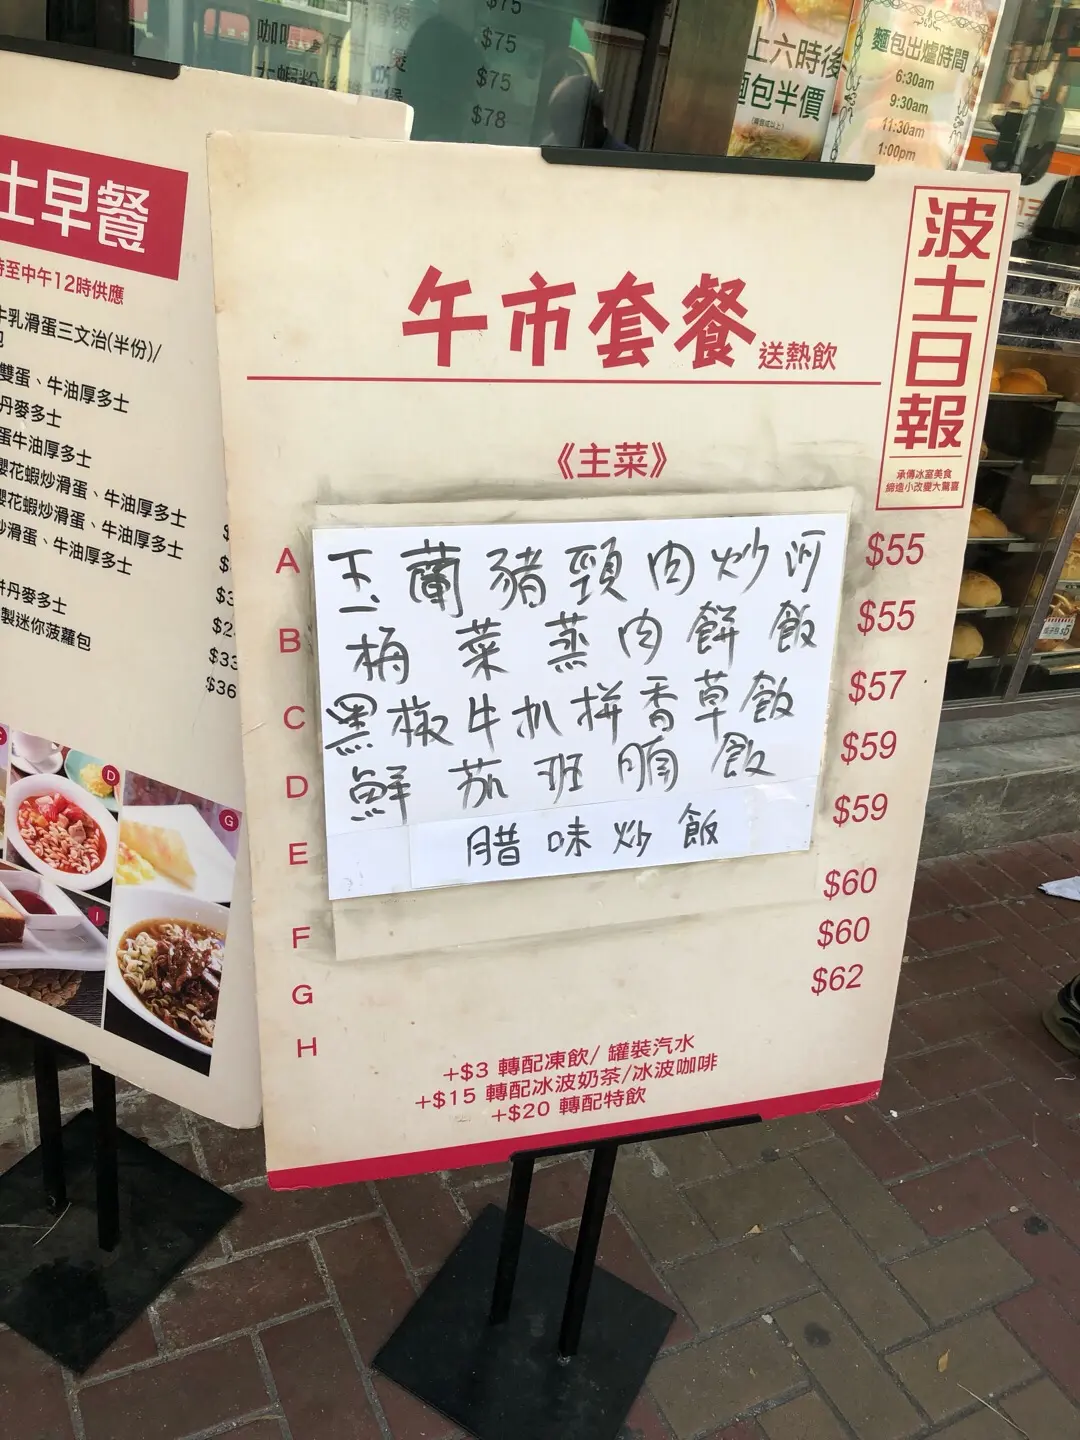 $75
咖
$75
$75
$78
上六時後
麵包半價
麵包出爐時間
6:30am
9:30am
11:30am
1:00pm
士早餐
時至中午12時供應
牛乳滑蛋三文治(半份)/
包
雙蛋、牛油厚多士
丹麥多士
蛋牛油厚多士
櫻花蝦炒滑蛋、牛油厚多士
櫻花蝦炒滑蛋、牛油厚多士
炒滑蛋、牛油厚多士
拼丹麥多士
製迷你菠蘿包
$33
$36
D
G
I
波士日報
承傳冰室美食
締造小改變大驚喜
午市套餐送熱飲
《主菜》
A 玉蘭豬頸肉炒河 $55
B 梅菜蒸肉餅飯 $55
C 黑椒牛扒拼香草飯 $57
D 鮮茄班腩飯 $59
E 腊味炒飯 $59
F $60
G $60
H $62
+$3 轉配凍飲/ 罐裝汽水
+$15 轉配冰波奶茶/冰波咖啡
+$20 轉配特飲